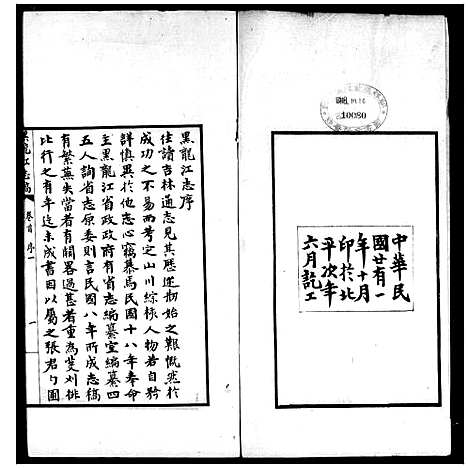 中華民
國廿有一
年十月
印於北
平次年
六月訖工
10080
黑龍江志序
往讀吉林通志見其歷述剏始之艱慨然於
成功之不易而考定山川綜核人物若自矜
詳慎異於他志心竊慕焉民國十八年奉命
至黑龍江省政府有省志編纂室編纂四
五人詢省志原委則言民國八年所成志稿
有繁蕪失當者有闕畧過甚者重為芟刈排
比行之有年迄未成書因以屬之張君勺圃
黑龍江志稿
卷首
序一
一